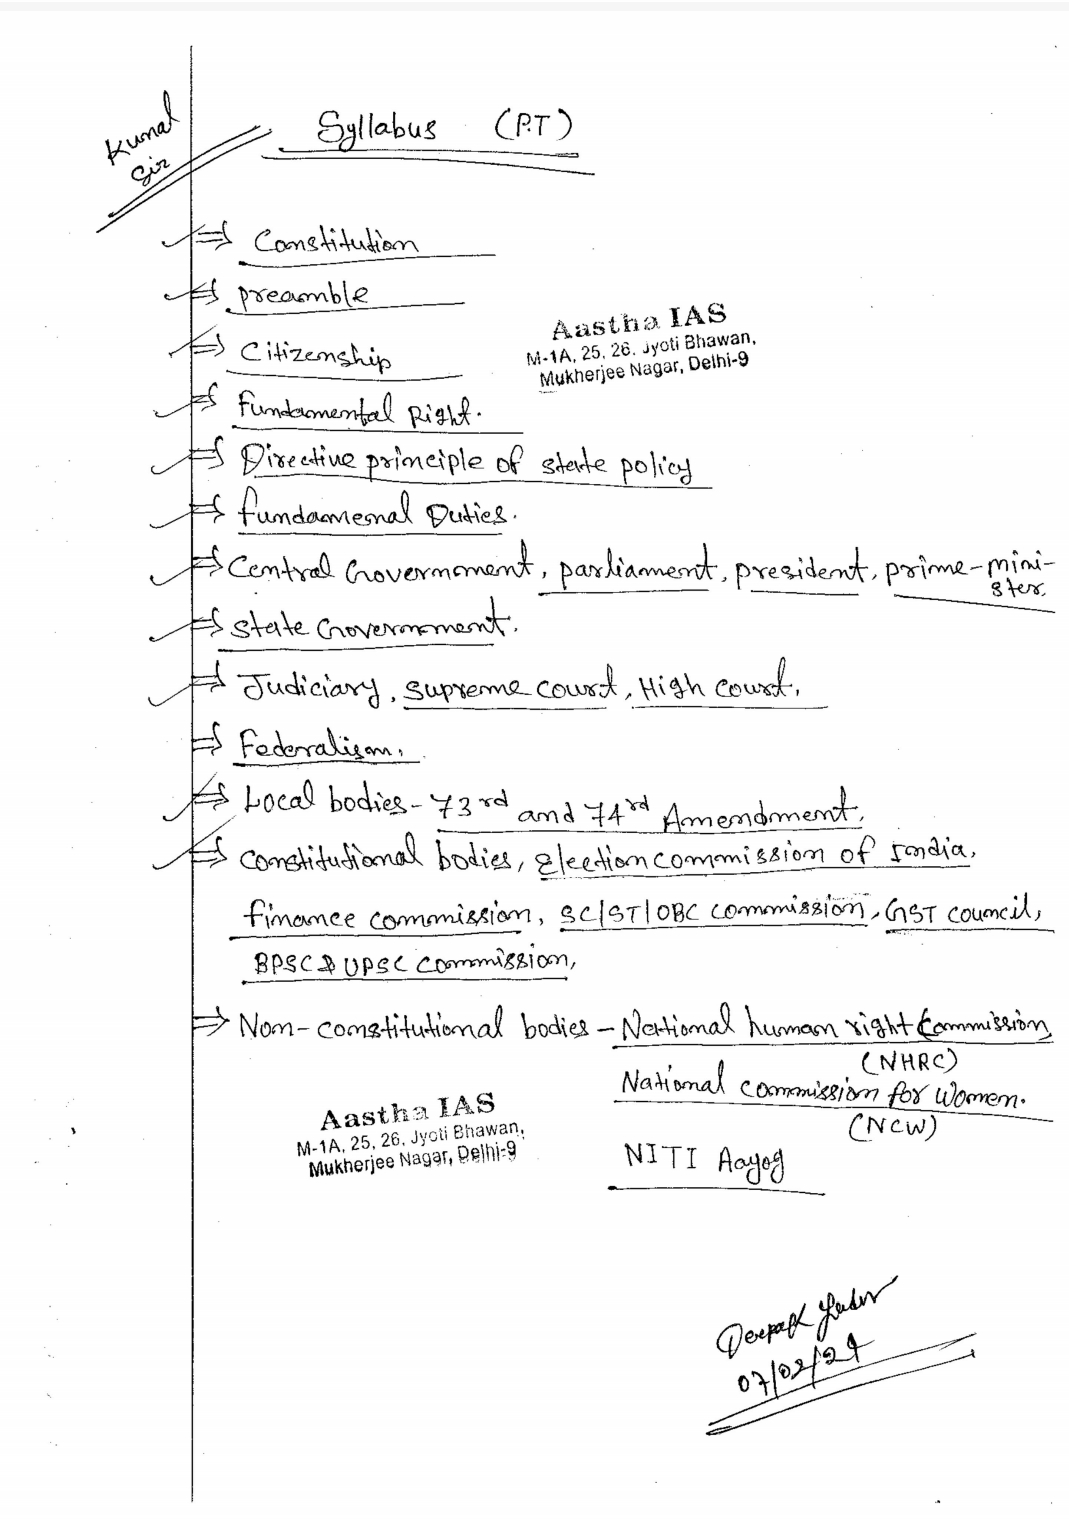 Kunal
Sir
Syllabus (P.T)
⇒ Constitution
⇒ preamble
⇒ Citizenship
Aastha IAS
M-1A, 25, 26, Jyoti Bhawan,
Mukherjee Nagar, Delhi-9
⇒ fundamental Right.
⇒ Directive principle of state policy
⇒ fundamesnal Duties.
⇒ Central Governmment, parliament, president, prime-mini-
ster.
⇒ state Governmment.
⇒ Judiciary, supreme court, High court,
⇒ Federalism,
⇒ Local bodies - 73rd and 74rd Amendment,
⇒ constitutional bodies, Election commission of India,
finance commission, SC/ST/OBC commission, GST council,
BPSC & UPSC commission,
⇒ Non-constitutional bodies - National human right Commission,
(NHRC)
National commission for Women.
(NCW)
NITI Aayog
Aastha IAS
M-1A, 25, 26, Jyoti Bhawan,
Mukherjee Nagar, Delhi-9
Deepak Yadav
07/02/24